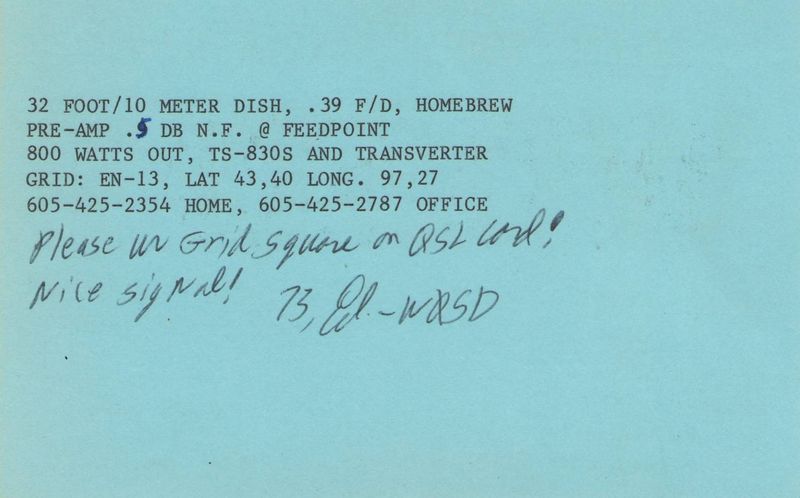 32 FOOT/10 METER DISH, .39 F/D, HOMEBREW
PRE-AMP .5 DB N.F. @ FEEDPOINT
800 WATTS OUT, TS-830S AND TRANSVERTER
GRID: EN-13, LAT 43,40 LONG. 97,27
605-425-2354 HOME, 605-425-2787 OFFICE
Please ur Grid Square on QSL card!
Nice signal! 73, Ed - WØSD